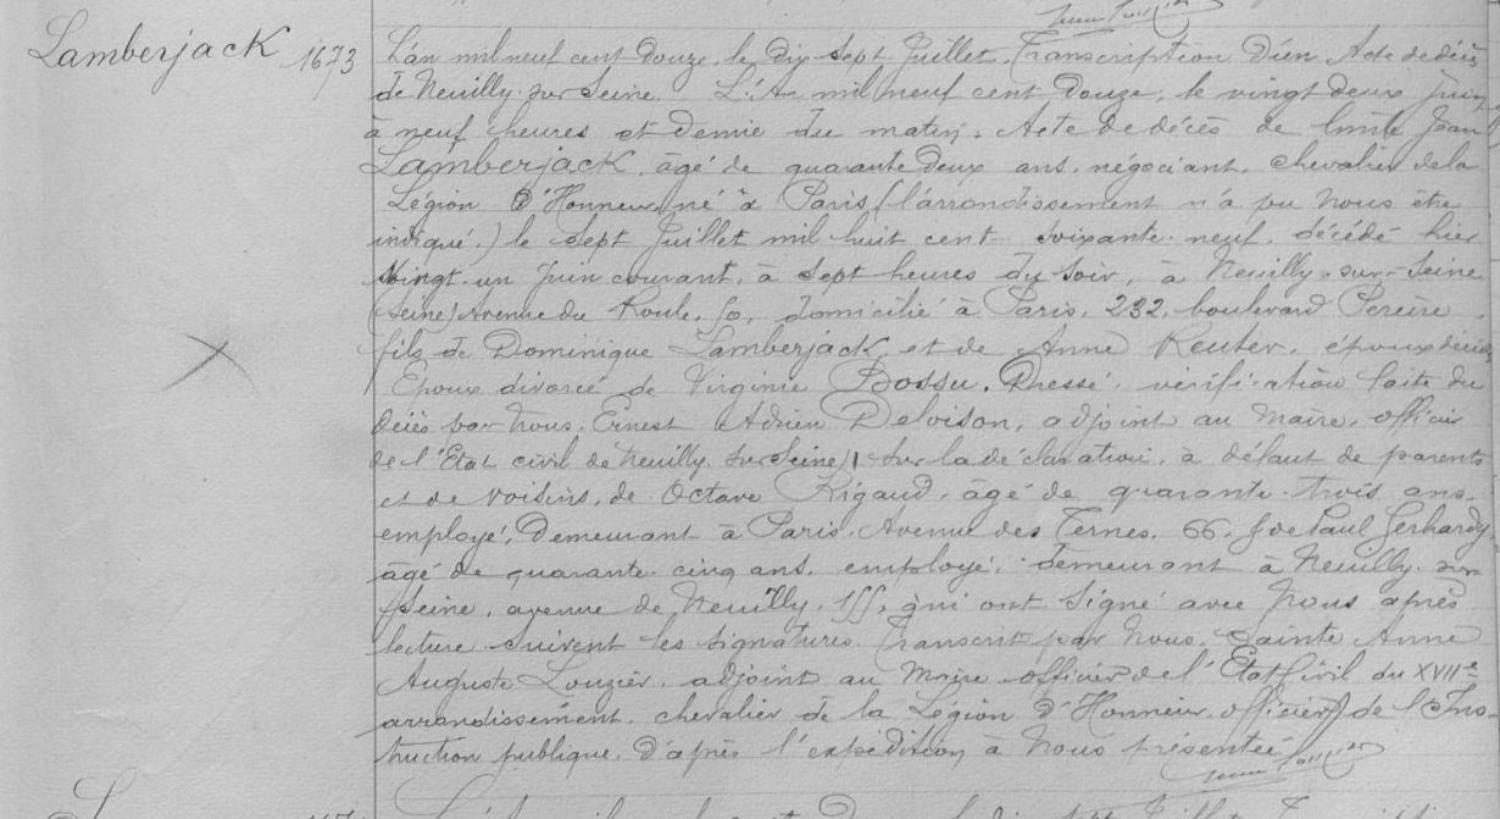 Lamberjack 1673
L'an mil neuf cent douze, le dix sept Juillet, Transcription d'un Acte de décès
de Neuilly sur Seine. L'An mil neuf cent douze, le vingt deux Juin
à neuf heures et demie du matin. Acte de décès de Emile Jean
Lamberjack, âgé de quarante deux ans, négociant, chevalier de la
Légion d'Honneur, né à Paris (l'arrondissement n'a pu nous être
indiqué.) le sept Juillet mil huit cent soixante-neuf, décédé hier
vingt-un Juin courant, à sept heures du soir, à Neuilly-sur-Seine
(Seine) Avenue du Roule, 50, domicilié à Paris, 232, boulevard Pereire,
fils de Dominique Lamberjack et de Anne Reuter, époux décédés
Epoux divorcé de Virginie Bossu. Dressé, vérification faite du
décès par Nous, Ernest Adrien Deloison, adjoint au Maire, officier
de l'Etat civil de Neuilly-sur-Seine, sur la déclaration, à défaut de parents
et de voisins, de Octave Rigaud, âgé de quarante-trois ans,
employé, demeurant à Paris, Avenue des Ternes, 66, & de Paul Gerhardy
âgé de quarante-cinq ans, employé, demeurant à Neuilly-sur-
Seine, avenue de Neuilly, 155, qui ont signé avec Nous après
lecture suivent les signatures. Transcrit par Nous, Sainte Anne
Auguste Louzier, adjoint au Maire officier de l'Etat Civil du XVIIe
arrondissement, chevalier de la Légion d'Honneur, officier de l'Ins-
truction publique, d'après l'expédition à Nous présentée